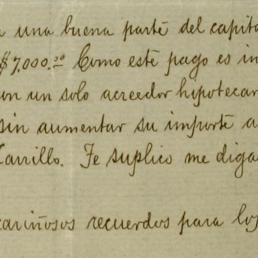 una buena parte del capita
$7,000.00 Como este pago es in
un solo acreedor hipotecar
sin aumentar su importe a
Carrillo. Te suplico me diga
cariñosos recuerdos para los